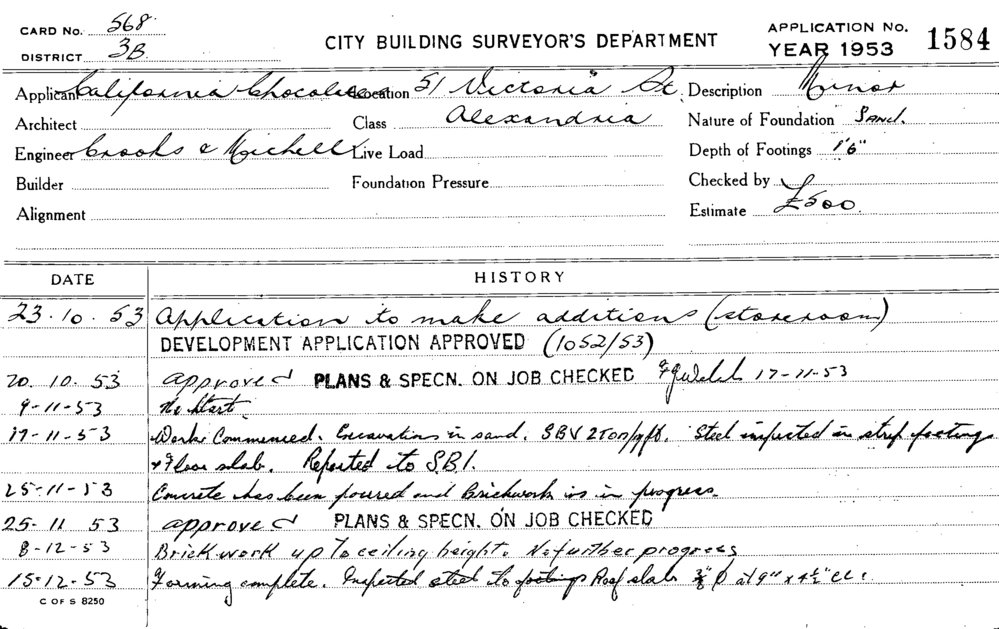 CARD No. 568.
DISTRICT 3B.
CITY BUILDING SURVEYOR'S DEPARTMENT
APPLICATION No. 1584
YEAR 1953
Applicant California Chocolates Location 51 Victoria St. Description Minor
Architect Class Alexandria Nature of Foundation Sand.
Engineer Crooks & Michell Live Load Depth of Footings 1'6"
Builder Foundation Pressure Checked by
Alignment Estimate £500.
DATE HISTORY
23.10.53 Application to make additions (storeroom)
DEVELOPMENT APPLICATION APPROVED (1052/53)
20.10.53 approved PLANS & SPECN. ON JOB CHECKED 17-11-53
9-11-53 No start.
17-11-53 Work Commenced. Excavations in sand. SBV 2Ton/sq ft. Steel inspected in strip footings
& Floor slab. Reported to S.B.I.
25-11-53 Concrete has been poured and Brickwork is in progress.
25-11 53 approved PLANS & SPECN. ON JOB CHECKED
8-12-53 Brickwork up to ceiling height. No further progress
15-12-53 Forming complete. Inspected steel to footings Roof slab at 9" x 4½"
C OF S 8250